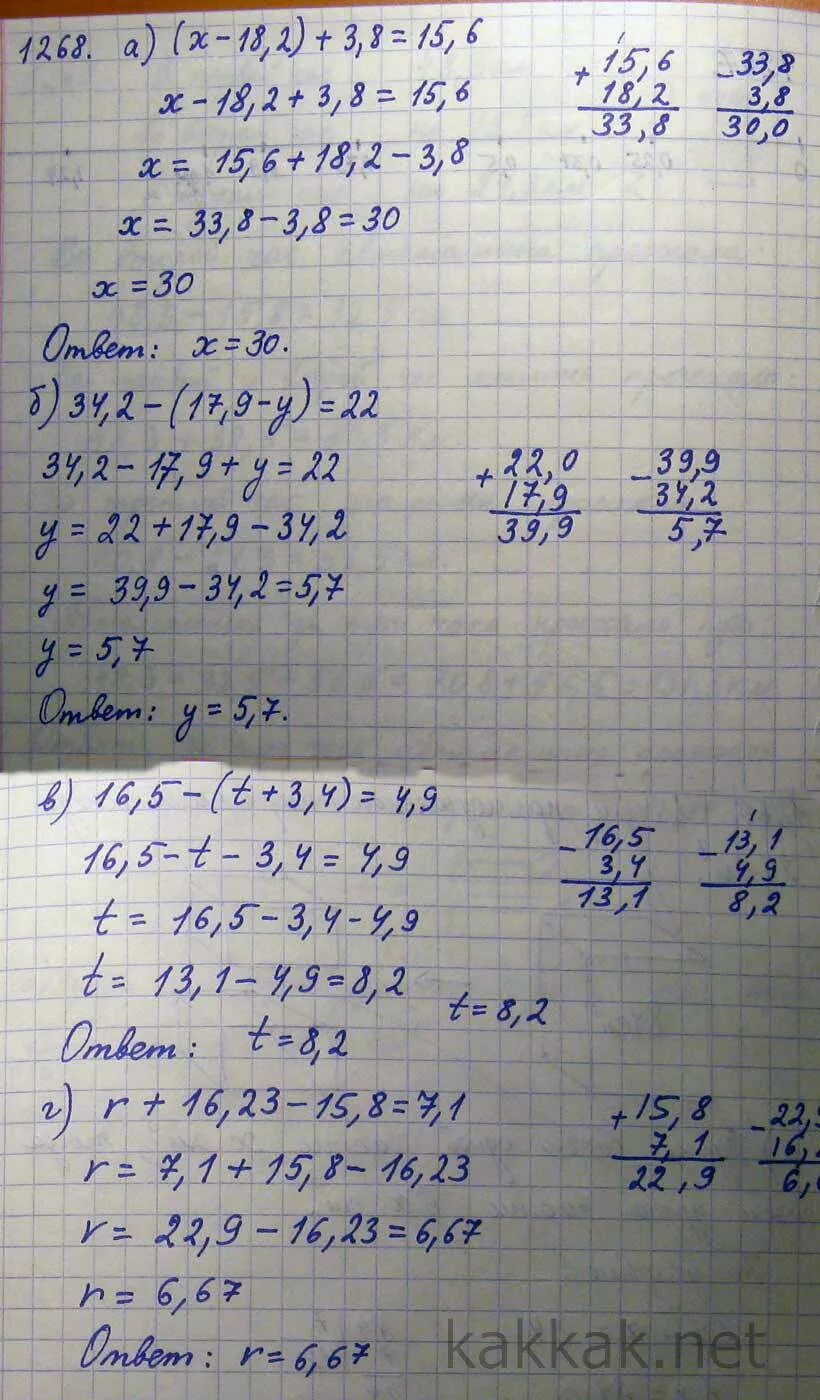 1268. а) (x - 18,2) + 3,8 = 15,6
x - 18,2 + 3,8 = 15,6
x = 15,6 + 18,2 - 3,8
x = 33,8 - 3,8 = 30
x = 30
Ответ: x = 30.
+ 15,6
18,2
33,8
- 33,8
3,8
30,0
б) 34,2 - (17,9 - y) = 22
34,2 - 17,9 + y = 22
y = 22 + 17,9 - 34,2
y = 39,9 - 34,2 = 5,7
y = 5,7
Ответ: y = 5,7.
+ 22,0
17,9
39,9
- 39,9
34,2
5,7
в) 16,5 - (t + 3,4) = 4,9
16,5 - t - 3,4 = 4,9
t = 16,5 - 3,4 - 4,9
t = 13,1 - 4,9 = 8,2
t = 8,2
Ответ: t = 8,2
- 16,5
3,4
13,1
- 13,1
4,9
8,2
г) r + 16,23 - 15,8 = 7,1
r = 7,1 + 15,8 - 16,23
r = 22,9 - 16,23 = 6,67
r = 6,67
Ответ: r = 6,67
+ 15,8
7,1
22,9
- 22,
16,
6,
kakkak.net